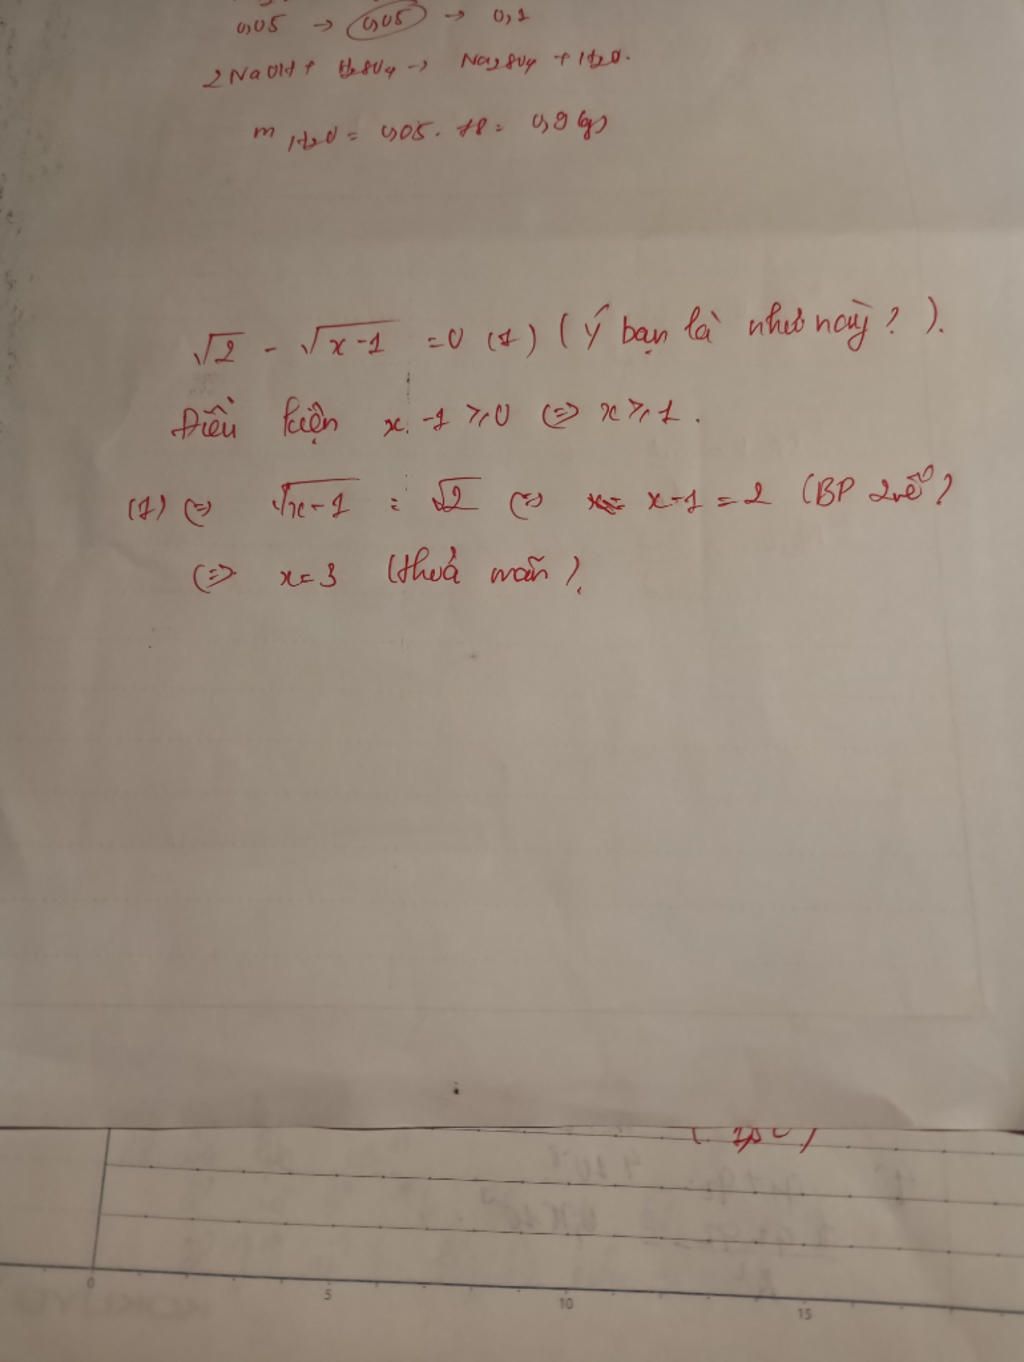 0,05 → 0,05 → 0,1
2NaOH + H2SO4 → Na2SO4 + H2O.
m H2O = 0,05. 18 = 0,9 (g)
√2 - √x-1 = 0 (1) (Ý bạn là như này? ).
Điều kiện x -1 ⩾ 0 <=> x ⩾ 1.
(1) <=> √x-1 = √2 <=> x-1 = 2 (BP 2 vế)
<=> x = 3 (thoả mãn).
0 5 10 15